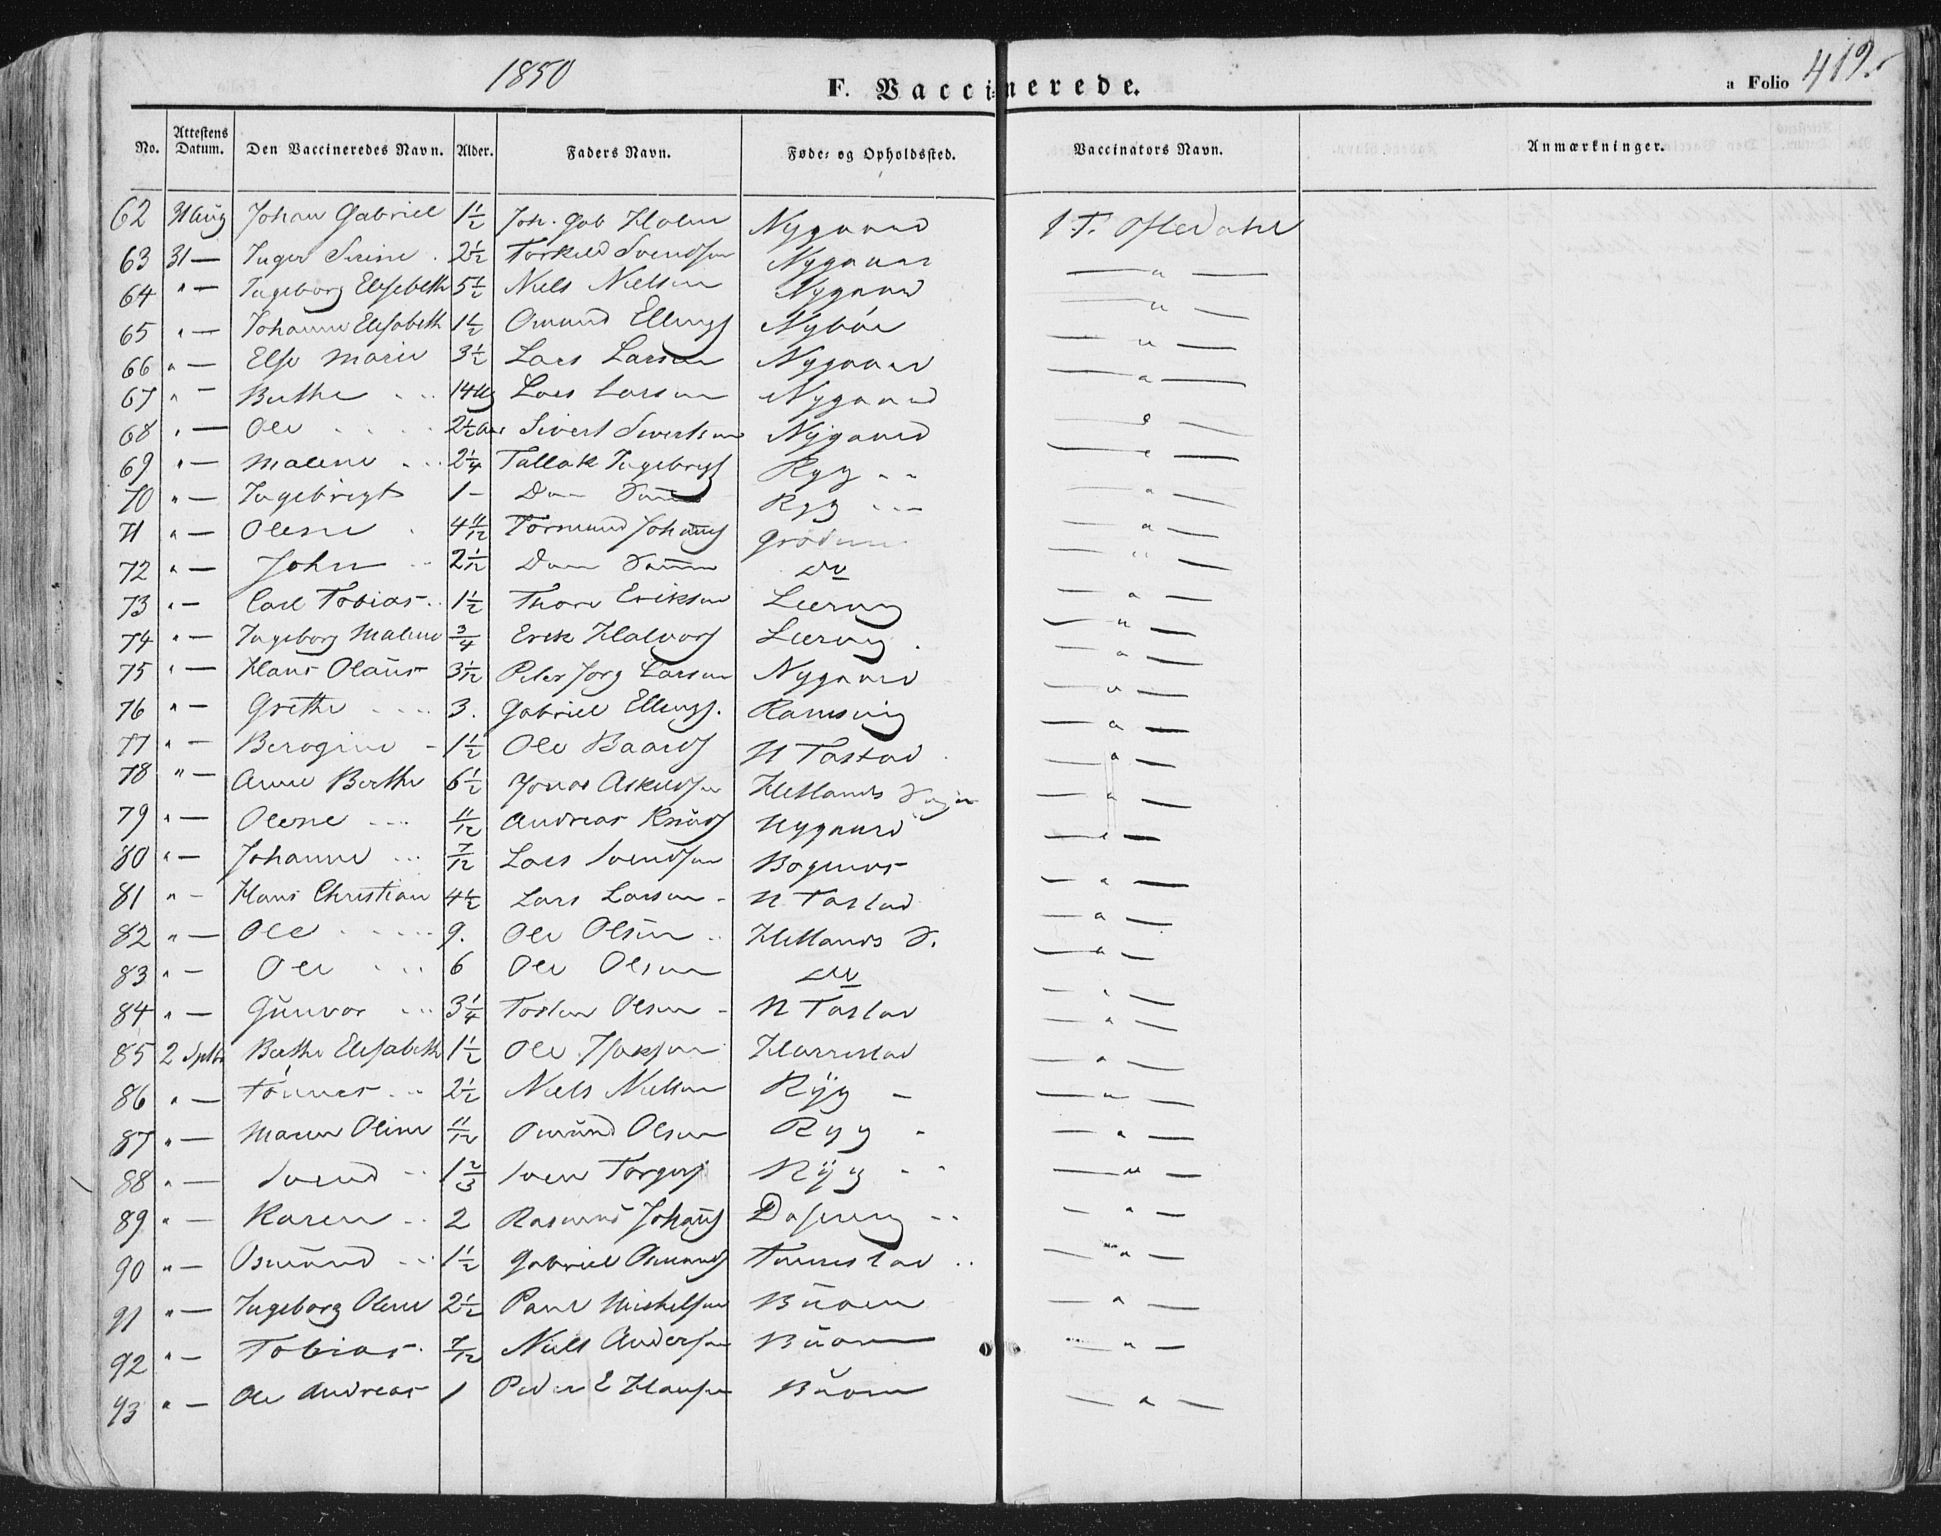 1850
F. Vaccinerede.
a Folio 419.
No. Attestens Datum. Den Vaccineredes Navn. Alder. Faders Navn. Føde- og Opholdssted. Vaccinators Navn. Anmærkninger.
62 31 Aug Johan Gabriel 1½ Joh. Gab Holm Nygaard
63 31 — Inger Serine 2½ Torkild Svendsen Nygaard — " —
64 " — Ingeborg Elisebeth 5½ Niels Nielsen Nygaard — " —
65 " — Johanne Elisabeth 1½ Omund Ellings Nybøe — " —
66 " — Else Marie 3½ Lars Larsen Nygaard — " —
67 " — Berthe 14 Lars Larsen Nygaard — " —
68 " — Ole 2½ Aar Sivert Sivertsen Nygaard — " —
69 " — Malene 2¼ Tallak Ingebrigs Ryg — " —
70 " — Ingebrigt 1 — Den Samme Ryg — " —
71 " — Olene 4 11/12 Tormund Johans Grødem — " —
72 " — John 2 1/12 Den Samme do — " —
73 " — Carl Tobias 1½ Thore Eriksen — " —
74 " — Ingeborg Malene ¾ Erik Halvors — " —
75 " — Hans Olaus 3 1/12 Peder Jørg Larsen Nygaard — " —
76 " — Grethe 3. Gabriel Ellings. Ramsvig — " —
77 " — Berogine 1½ Ole Baards N Tastad — " —
78 " — Anne Berthe 6½ Jonas Askildsen Hetlands — " —
79 " — Olene 11/12 Andreas Knuds Nygaard — " —
80 " — Johanne 7/12 Lars Svendsen Bognæs — " —
81 " — Hans Christian 4½ Lars Larsen N Tastad — " —
82 " — Ole 9. Ole Olsen Hetlands S. — " —
83 " — Ole 6 Ole Olsen do — " —
84 " — Gunvor 3¼ Tosten Olsen N Tastad — " —
85 2 Septb Berthe Elisabeth 1½ Ole Isaksen Harrestad — " —
86 " — Tønnes 2½ Niels Nielsen Ryg — " —
87 " — Maren Oline 11/12 Omund Olsen Ryg — " —
88 " — Svend 1⅔ Sven Torgers Ryg — " —
89 " — Karen 2 Rasmus Johans Dusevig — " —
90 " — Osmund 1½ Gabriel Osmunds — " —
91 " — Ingeborg Olene 2½ Paul Michelsen Buøen — " —
92 " — Tobias 7/12 Niels Andersen Buøen — " —
93 " — Ole Andreas 1 Peder E Hansen Buøen — " —